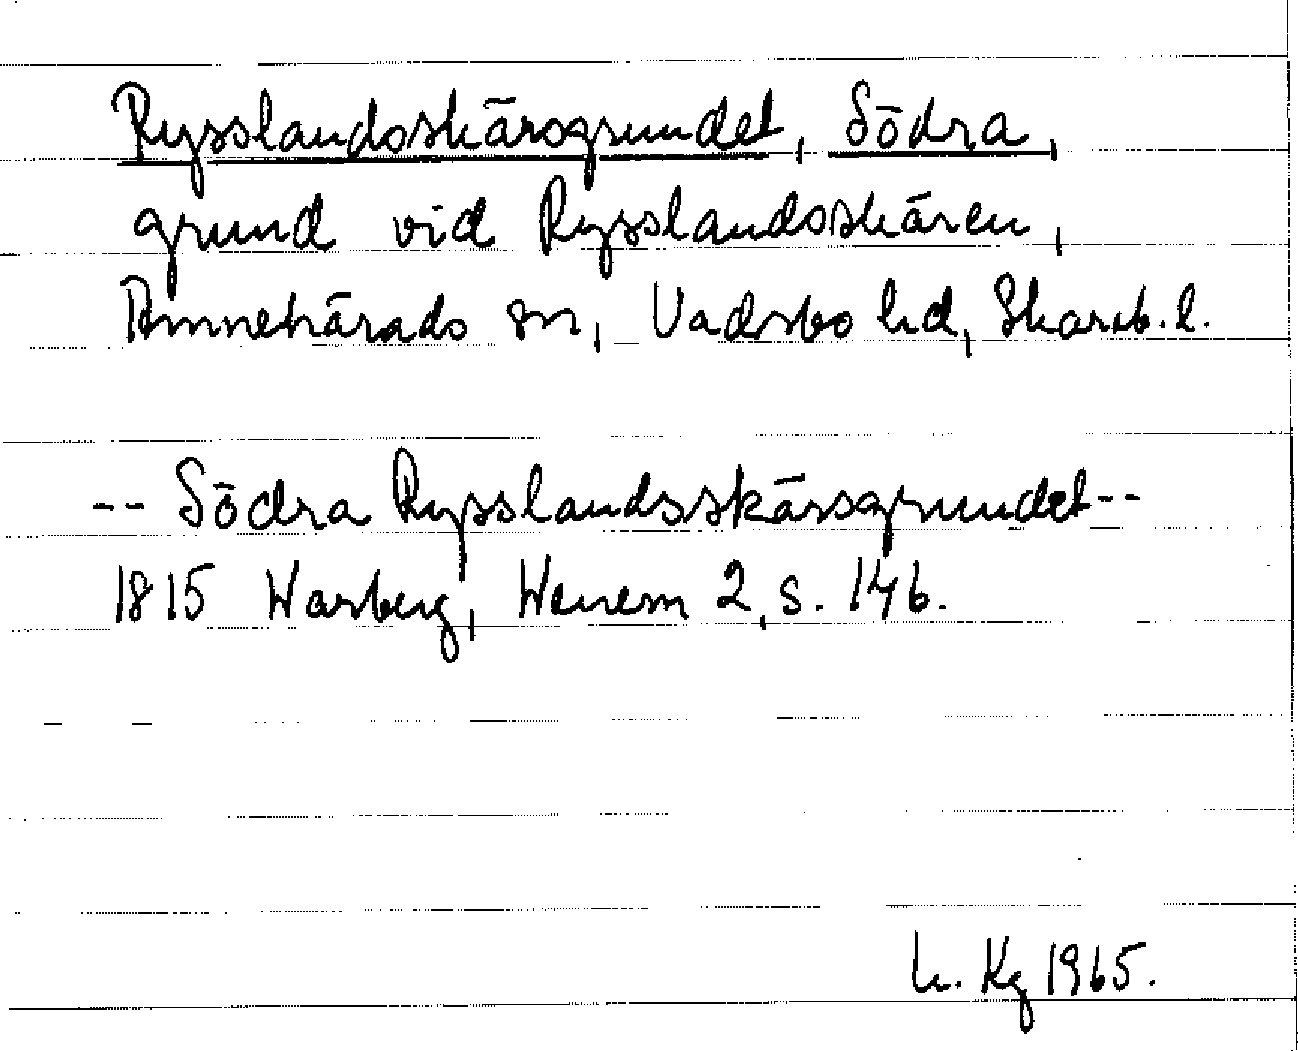 Rysslandsskärsgrundet, Södra,
grund vid Rysslandsskären,
Amnehärads sn, Vadsbo hd, Skarab. l.
-- Södra Rysslandsskärsgrundet --
1815 Warberg, Wenern 2, s. 146.
h. Kg 1965.